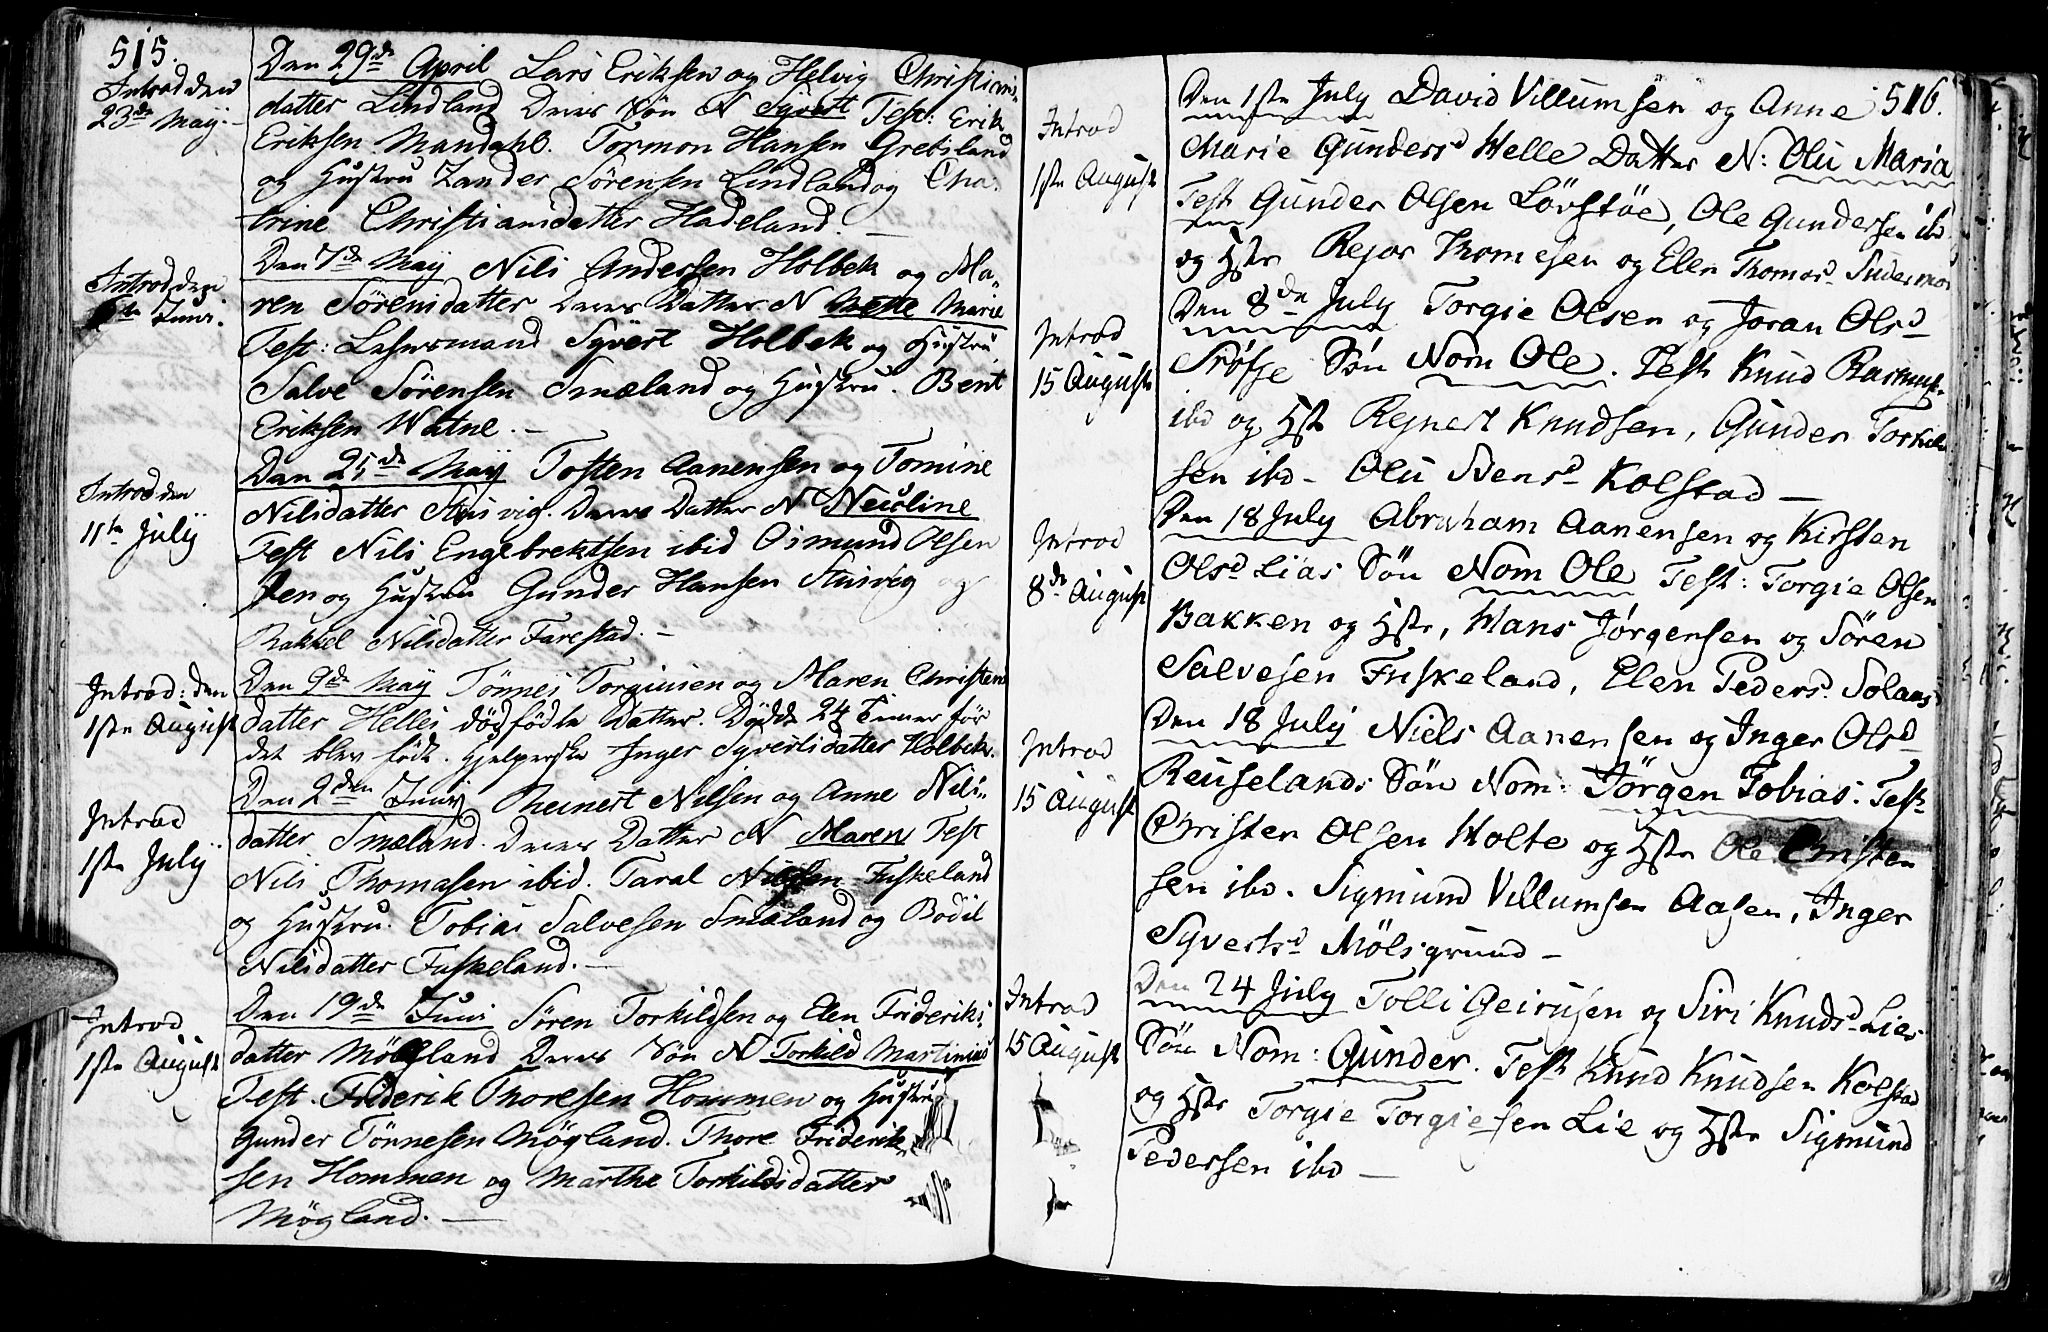 515.
Introd den
23de Maÿ.
Den 29de April Lars Eriksen og Helvig Christians-
datter Lindland Deres Søn N Syvert Test: Erik
Eriksen Mandahl. Tormon Hansen Grebsland
og Hustru Zander Sørensen Lindland og Cha-
trine Christiansdatter Hadeland. —
Introd den
Juni.
Den 7de Maÿ Nils Andersen Holbek og Ma-
ren Sørensdatter Deres Datter N Mette Marie
Test: Lehnsmand Syvert Holbek og Hustru
Salve Sørensen Smæland og Hustru. Bent
Eriksen Watne. —
Introd den
11te Julÿ
Den 25de Maÿ Tosten Aanensen og Tomine
Nilsdatter Stusvig. Deres Datter N Neuline
Test Nils Engebrektsen ibid Osmund Olsen
og Hustru Gunder Hansen Stusvig og
Rakkel Nilsdatter Farestad. —
Introd: den
1ste August
Den 9de Maÿ Tönnes Torgiusen og Maren Christens
datter Helles dödfödte Datter. Dödde 24 Timer för
det blev födt. Hjelperske Inger Syvertsdatter Holbek.
Introd
1ste Julÿ
Den 2den Junÿ Reinert Nilsen og Anne Nils-
datter Smæland. Deres Datter N Maren Test
Nils Thomasen ibid. Taral Nilsen Fuskeland
og Hustru. Tobias Salvesen Smæland og Bodil
Nilsdatter Fuskeland. —
Introd
1ste August
Den 19de Juni Søren Torkildsen og Elen Frideriks-
datter Mögland Deres Søn N Torkild Martinius
Test. Friderik Thoresen Hommen og Hustru
Gunder Tönnesen Mögland. Thore Friderik-
sen Hommen og Marthe Torkildsdatter
Mögland. —
516.
Introd
1ste August
Den 1ste July David Villumsen og Anne
Marie Gundersd Helle Datter N: Olu Maria
Test Gunder Olsen Lövstöe, Ole Gundersen ibd
og Hstr Rejar Thomesen og Elen Thomasd
Introd
15 August
Den 8de July Torgie Olsen og Joran Olsd
Søn Nom Ole. Test Knud
ibd og Hstr Rejnert Knudsen, Gunder Torkild
sen ibd - Olu Stensd Kolstad —
Introd
8de August
Den 18 July Abraham Aanensen og Kirsten
Olsd Lias Søn Nom Ole Test: Torgie Olsen
Bakken og Hstr, Hans Jørgensen og Søren
Salvesen Fuskeland, Elen Pedersd Solaas
Introd
15 August
Den 18 July Niels Aanensen og Inger Olsd
Reuselands Søn Nom: Jørgen Tobias. Test
Christen Olsen Holte og Hstr Ole Christen
sen ibd. Sigmund Villumsen Aasen, Inger
Syvertsd Mölsgrund —
Introd
15 August
Den 24 July Tolli Geirusen og Siri Knudsd Lies
Søn Nom: Gunder. Test Knud Knudsen Kolstad
og Hstr Torgie Torgiesen Lie og Hstr Sigmund
Pedersen ibd —